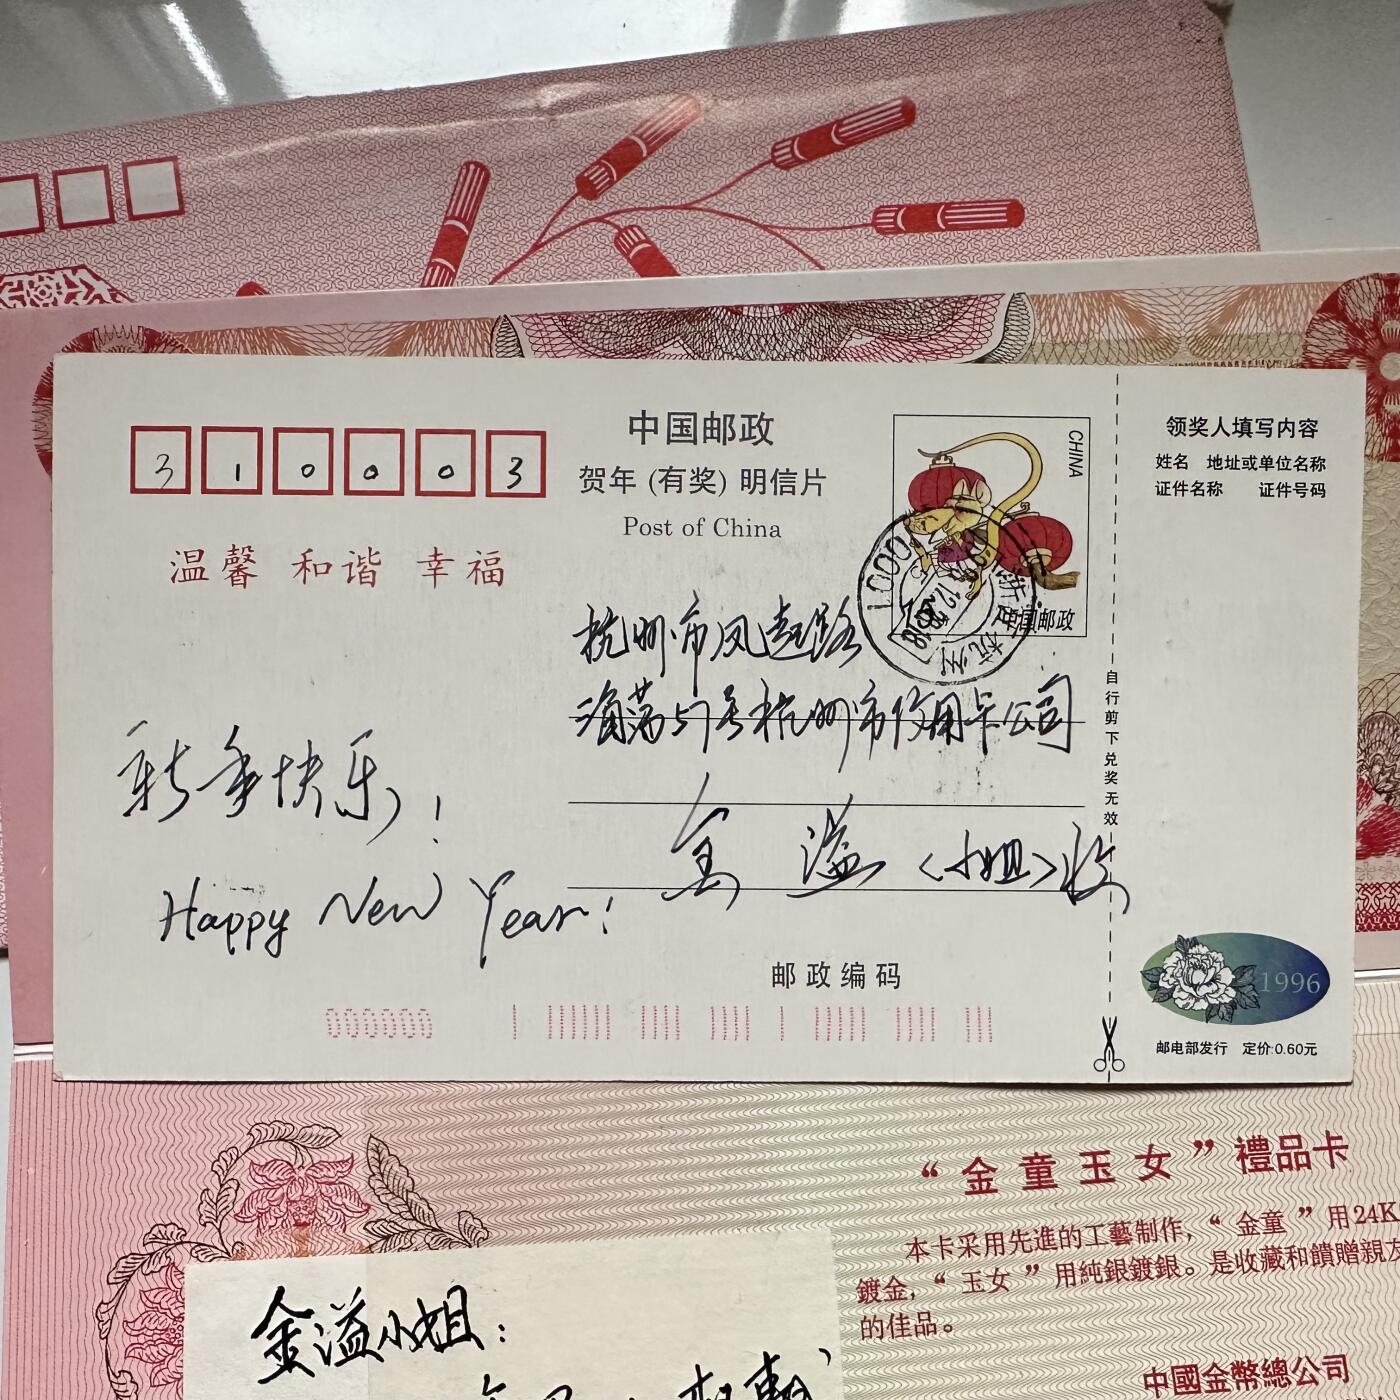 310003
中国邮政
贺年 (有奖) 明信片
Post of China
温馨 和谐 幸福
CHINA
中国邮政
杭州市凤起路
57号杭州市信用卡公司
金 溢 <小姐>收
新年快乐!
Happy New Year!
邮政编码
000000
领奖人填写内容
姓名 地址或单位名称
证件名称 证件号码
自行剪下兑奖无效
1996
邮电部发行 定价:0.60元
“金童玉女”禮品卡
本卡采用先進的工藝制作,“金童”用24K
鍍金,“玉女”用純銀鍍銀。是收藏和饋贈親友
的佳品。
中國金幣總公司
金溢小姐: